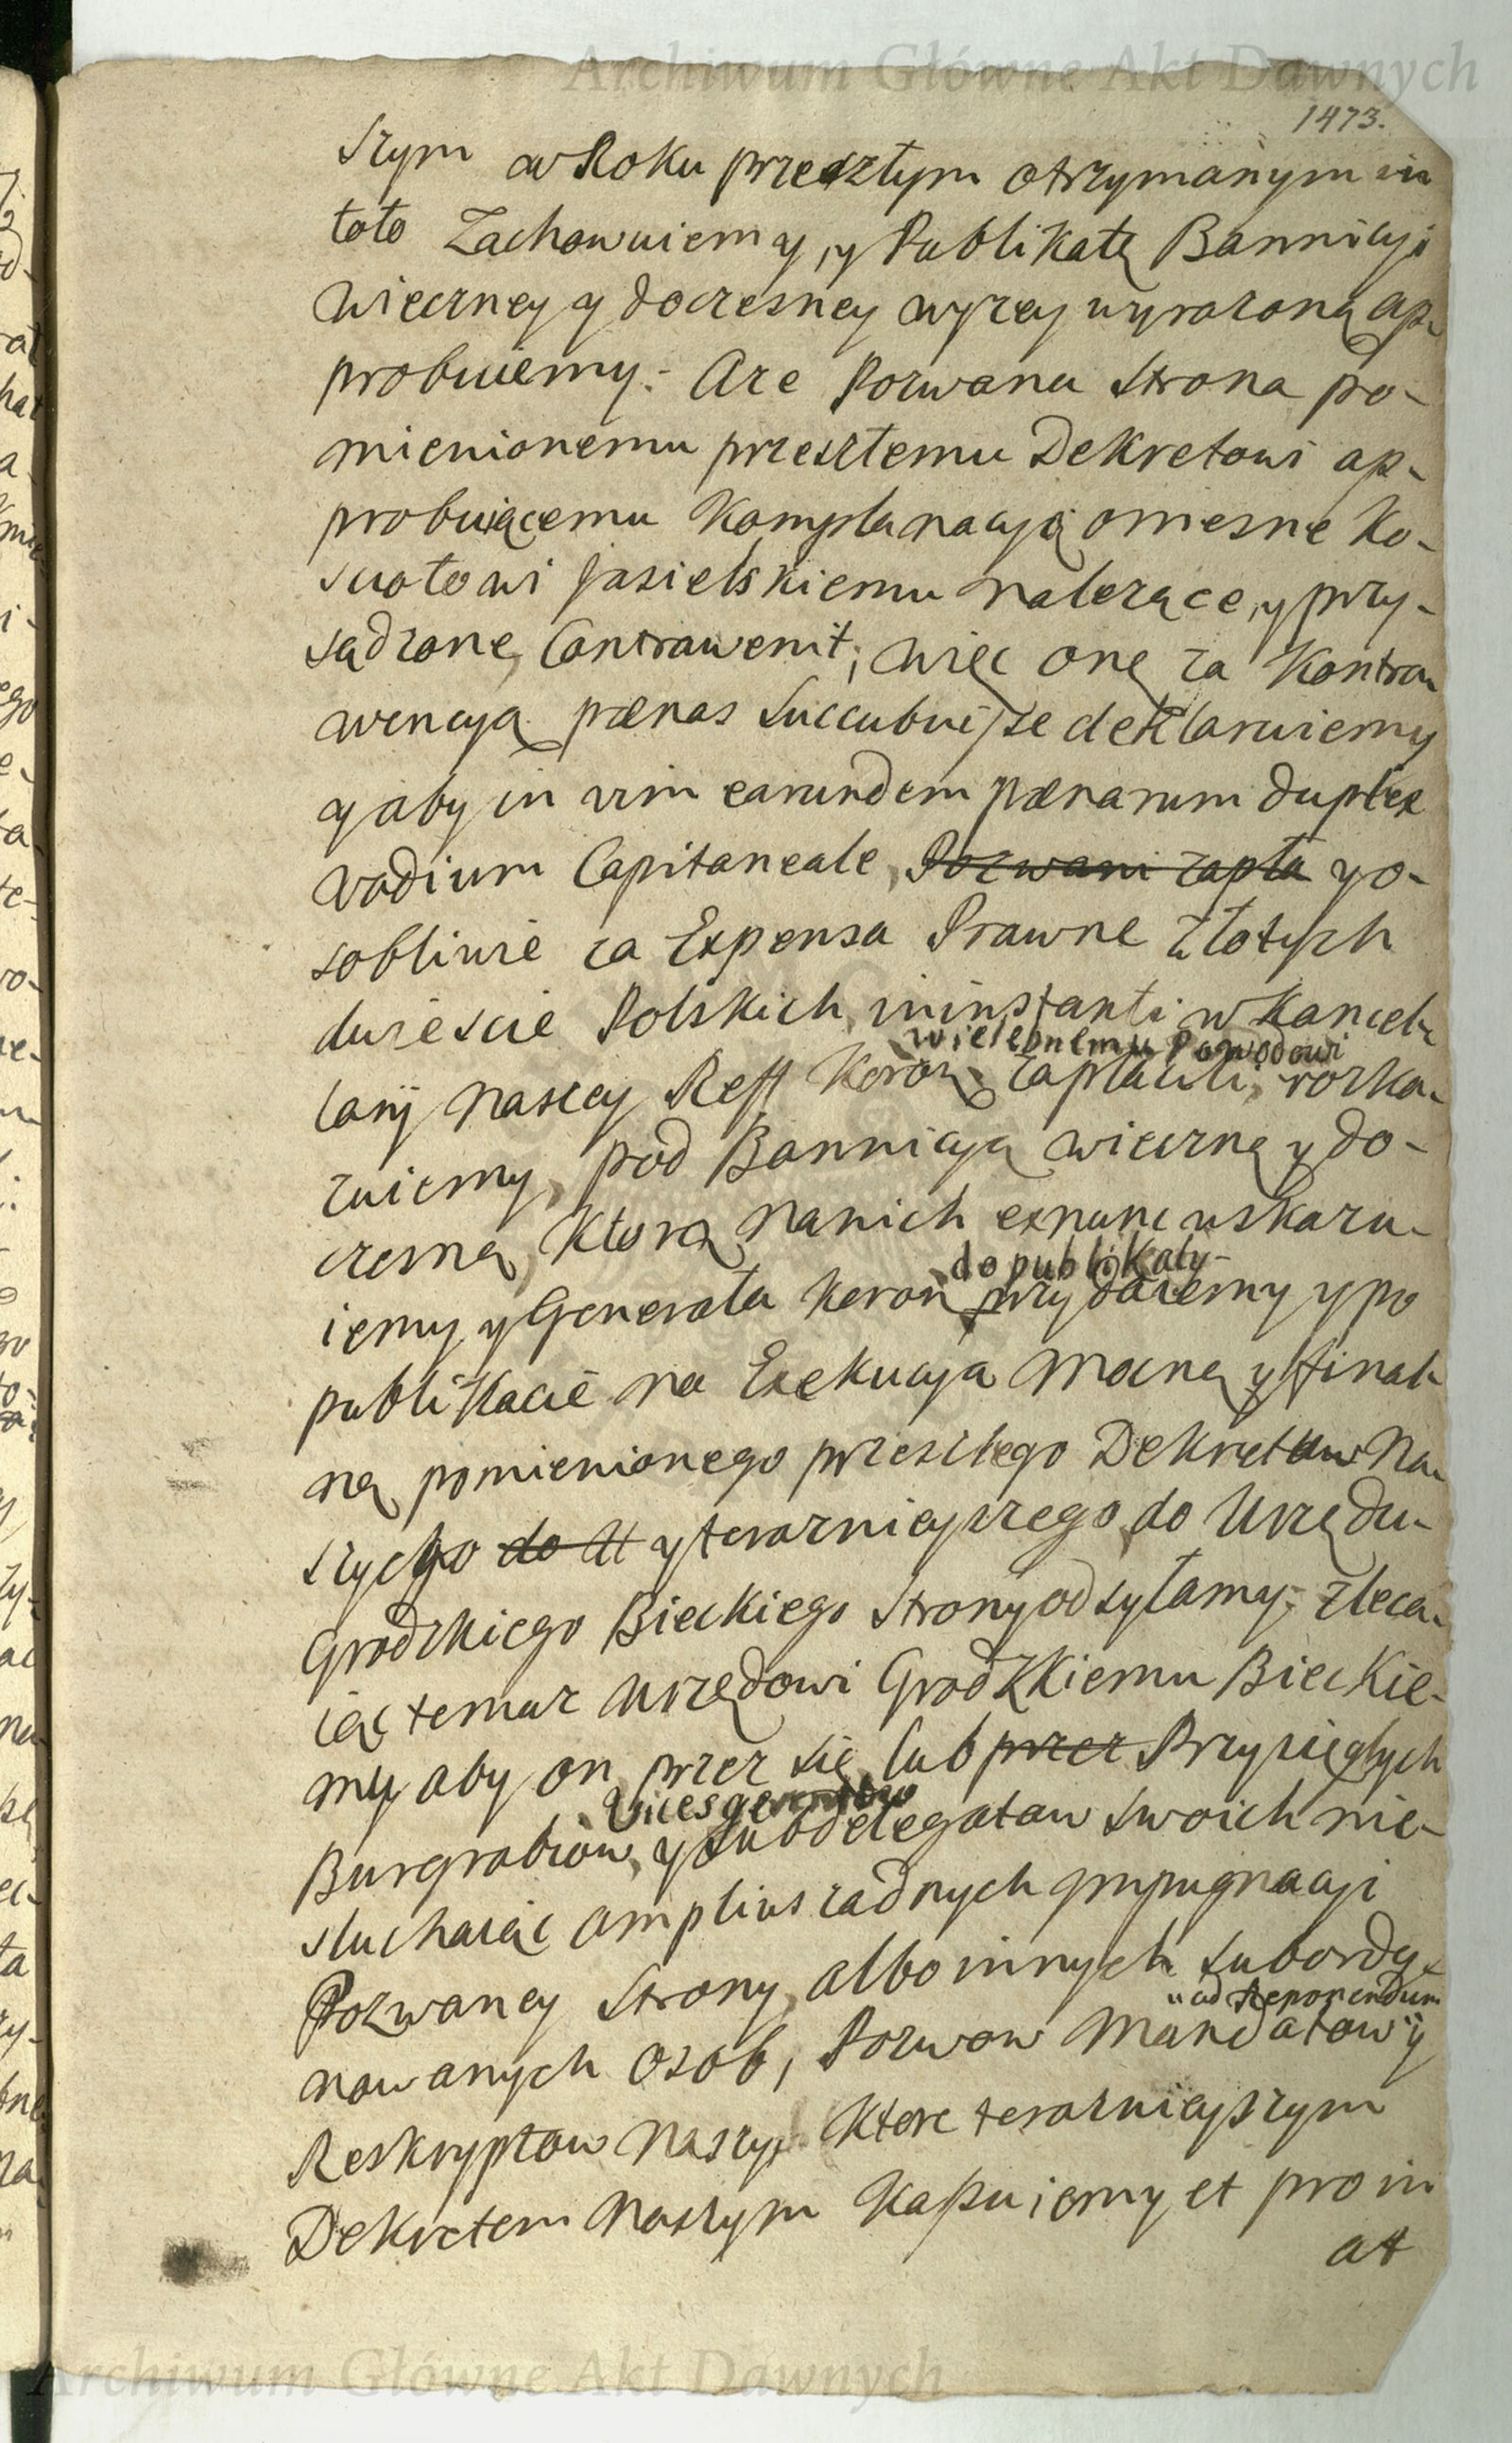 Archiwum Główne Akt Dawnych
1473.
szym w Roku przeszłym otrzymanym in
toto Zachowuiemy, y Publikatę Bannicyi
wieczney y doczesney wyżey wyrażoną ap-
probuiemy. Aże Pozwana Strona po-
mienionemu przeszłemu Dekretowi ap-
probuiącemu Komplanacyią omesne Ko-
sciołowi Jasielskiemu należące, y przy-
sądzone, Contrawenit, więc onę za Kontra-
wencyą pænas succubuisse deklaruiemy
y aby in vim earundem pænarum duplex
vadium Capitaneale, Pozwani zapła yo-
sobliwie za Expensa Prawne złotych
dwiescie Polskich, ininstanti w Kancel-
wielebnemu Powodowi
laryi Naszey Reff Koron: zapłacili, rozka-
zuiemy, pod Bannicyą wieczną y do-
czesną, Ktorą Nanich exnunc wskazu-
do publikaty
iemy, y Generała Koron przydaiemy ypo
publikacie na Exekucyą Mocną y final-
ną pomienionego przeszłego Dekretu Na-
szego do U yteraznieyszego, do Urzędu
Grodzkiego Bieckiego Strony odsyłamy, zleca-
iąc temuz Urzędowi Grodzkiemu Bieckie-
mu aby on przez się, lub przez Przysięgłych
Vicesgerentow
Burgrabiow, y Subdelegatow swoich nie-
słuchaiąc amplius żadnych impugnacyi
Pozwaney Strony, albo innych subordy-
ad Reponendum
nowanych Osob, Pozwow Mandatow y
Reskryptow Naszych Ktore teraznieyszym
Dekretem Naszym Kassuiemy et pro in
at
Archiwum Główne Akt Dawnych